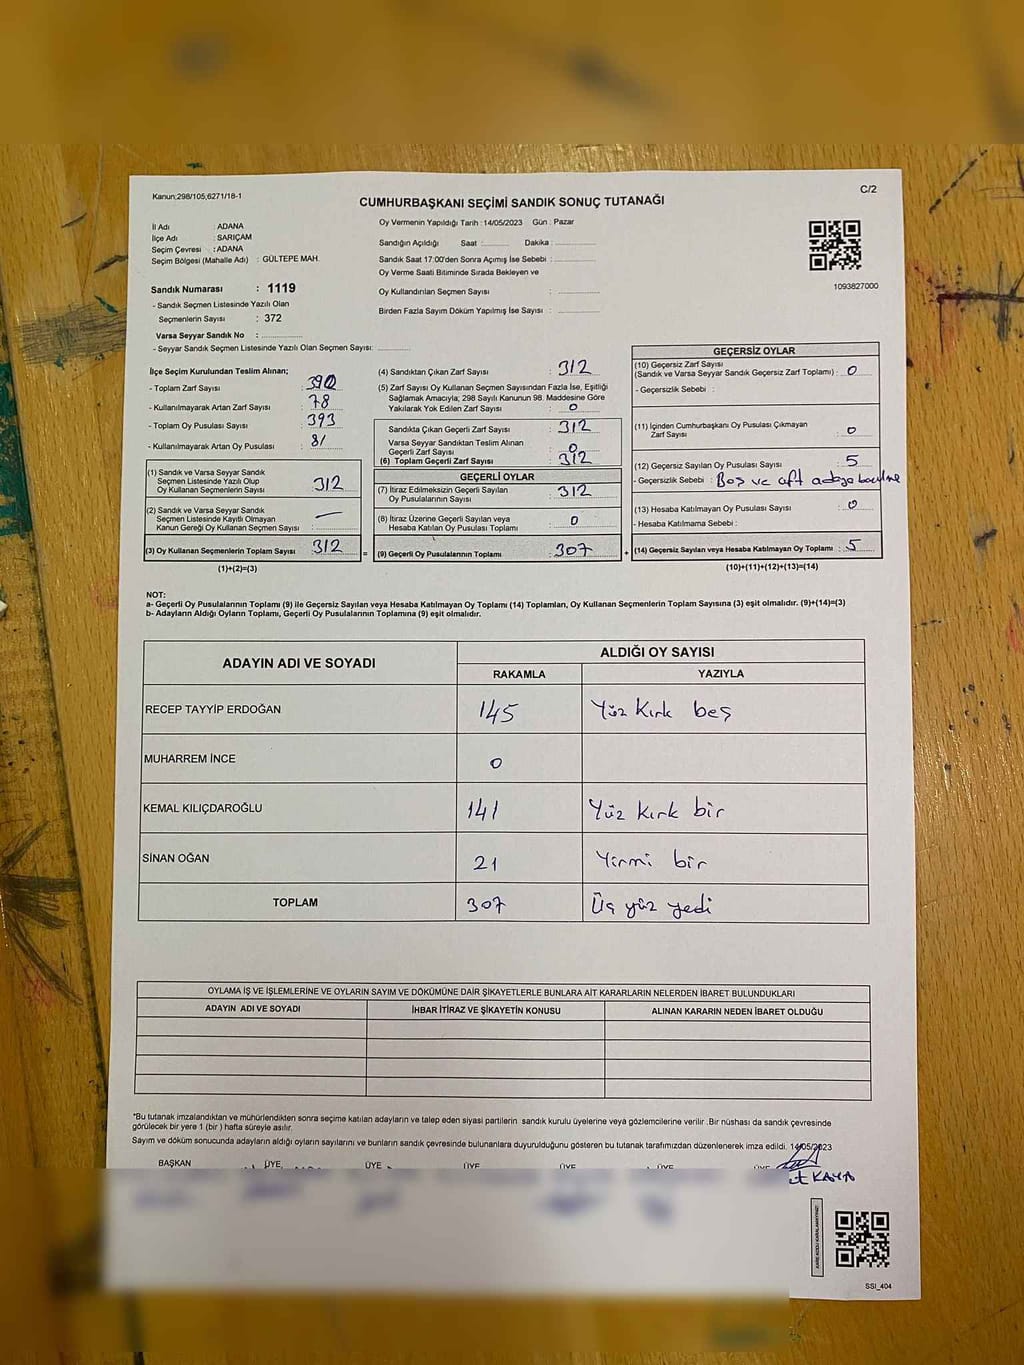 Kanun;298/105;6271/18-1
C/2
CUMHURBAŞKANI SEÇİMİ SANDIK SONUÇ TUTANAĞI
İl Adı : ADANA
İlçe Adı : SARIÇAM
Seçim Çevresi : ADANA
Seçim Bölgesi (Mahalle Adı) : GÜLTEPE MAH.
Sandık Numarası : 1119
- Sandık Seçmen Listesinde Yazılı Olan
Seçmenlerin Sayısı : 372
Varsa Seyyar Sandık No :
- Seyyar Sandık Seçmen Listesinde Yazılı Olan Seçmen Sayısı:
Oy Vermenin Yapıldığı Tarih : 14/05/2023 Gün : Pazar
Sandığın Açıldığı Saat : Dakika :
Sandık Saat 17:00'den Sonra Açımış İse Sebebi :
Oy Verme Saati Bitiminde Sırada Bekleyen ve
Oy Kullandırılan Seçmen Sayısı :
Birden Fazla Sayım Döküm Yapılmış İse Sayısı :
1093827000
İlçe Seçim Kurulundan Teslim Alınan;
- Toplam Zarf Sayısı : 390
- Kullanılmayarak Artan Zarf Sayısı : 78
- Toplam Oy Pusulası Sayısı : 393
- Kullanılmayarak Artan Oy Pusulası : 81
(1) Sandık ve Varsa Seyyar Sandık
Seçmen Listesinde Yazılı Olup
Oy Kullanan Seçmenlerin Sayısı : 312
(2) Sandık ve Varsa Seyyar Sandık
Seçmen Listesinde Kayıtlı Olmayan
Kanun Gereği Oy Kullanan Seçmen Sayısı : —
(3) Oy Kullanan Seçmenlerin Toplam Sayısı : 312
(1)+(2)=(3)
(4) Sandıktan Çıkan Zarf Sayısı : 312
(5) Zarf Sayısı Oy Kullanan Seçmen Sayısından Fazla İse, Eşitliği
Sağlamak Amacıyla; 298 Sayılı Kanunun 98. Maddesine Göre
Yakılarak Yok Edilen Zarf Sayısı : 0
Sandıkta Çıkan Geçerli Zarf Sayısı : 312
Varsa Seyyar Sandıktan Teslim Alınan
Geçerli Zarf Sayısı : 0
(6) Toplam Geçerli Zarf Sayısı : 312
GEÇERLİ OYLAR
(7) İtiraz Edilmeksizin Geçerli Sayılan
Oy Pusulalarının Sayısı : 312
(8) İtiraz Üzerine Geçerli Sayılan veya
Hesaba Katılan Oy Pusulası Sayısı : 0
= (9) Geçerli Oy Pusulalarının Toplamı : 307 +
GEÇERSİZ OYLAR
(10) Geçersiz Zarf Sayısı
(Sandık ve Varsa Seyyar Sandık Geçersiz Zarf Toplamı) : 0
- Geçersizlik Sebebi :
(11) İçinden Cumhurbaşkanı Oy Pusulası Çıkmayan
Zarf Sayısı : 0
(12) Geçersiz Sayılan Oy Pusulası Sayısı : 5
- Geçersizlik Sebebi : Boş ve çift adaya
(13) Hesaba Katılmayan Oy Pusulası Sayısı : 0
- Hesaba Katılmama Sebebi :
(14) Geçersiz Sayılan veya Hesaba Katılmayan Oy Toplamı : 5
(10)+(11)+(12)+(13)=(14)
NOT:
a- Geçerli Oy Pusulalarının Toplamı (9) ile Geçersiz Sayılan veya Hesaba Katılmayan Oy Toplamı (14) Toplamları, Oy Kullanan Seçmenlerin Toplam Sayısına (3) eşit olmalıdır. (9)+(14)=(3)
b- Adayların Aldığı Oyların Toplamı, Geçerli Oy Pusulalarının Toplamına (9) eşit olmalıdır.
ADAYIN ADI VE SOYADI ALDIĞI OY SAYISI
RAKAMLA YAZIYLA
RECEP TAYYİP ERDOĞAN 145 Yüz Kırk beş
MUHARREM İNCE 0
KEMAL KILIÇDAROĞLU 141 Yüz Kırk bir
SİNAN OĞAN 21 Yirmi bir
TOPLAM 307 Üç yüz yedi
OYLAMA İŞ VE İŞLEMLERİNE VE OYLARIN SAYIM VE DÖKÜMÜNE DAİR ŞİKAYETLERLE BUNLARA AİT KARARLARIN NELERDEN İBARET BULUNDUKLARI
ADAYIN ADI VE SOYADI İHBAR İTİRAZ VE ŞİKAYETİN KONUSU ALINAN KARARIN NEDEN İBARET OLDUĞU
*Bu tutanak imzalandıktan ve mühürlendikten sonra seçime katılan adayların ve talep eden siyasi partilerin sandık kurulu üyelerine veya gözlemcilerine verilir .Bir nüshası da sandık çevresinde
görülecek bir yere 1 (bir ) hafta süreyle asılır.
Sayım ve döküm sonucunda adayların aldığı oyların sayılarını ve bunların sandık çevresinde bulunanlara duyurulduğunu gösteren bu tutanak tarafımızdan düzenlenerek imza edildi. 14/05/2023
BAŞKAN ÜYE ÜYE ÜYE ÜYE ÜYE ÜYE
KAYA
KARE KODU KARALAMAYINIZ!
SSI_404